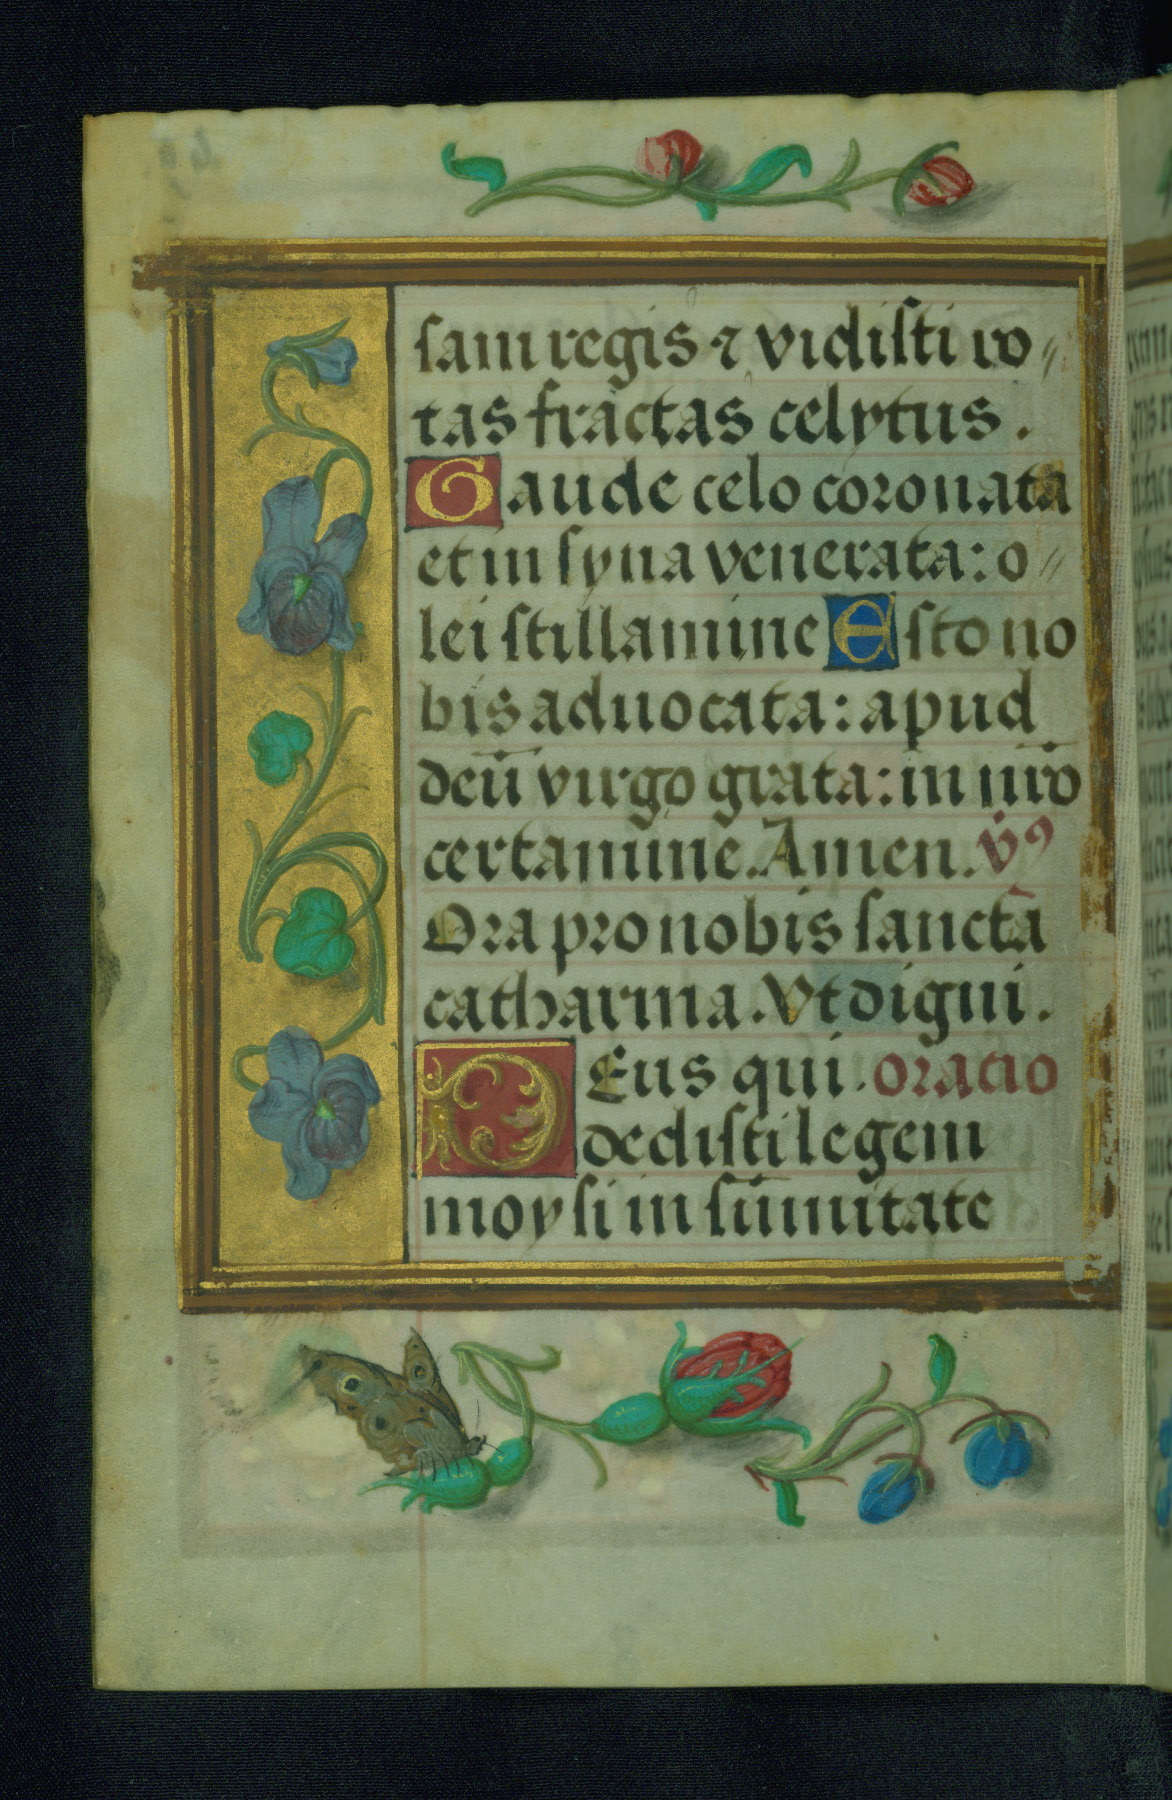 sam regis ⁊ vidisti ro〃
tas fractas celytus .
Gaude celo coronata
et in syna venerata: o〃
lei stillamine Esto no
bis aduocata: apud
deū virgo grata: in nr̄o
certamine. Amen. v̄9
Ora pro nobis sancta
catharina. Vt digni .
Deus qui . oratio
dedisti legem
moysi in sūmitate